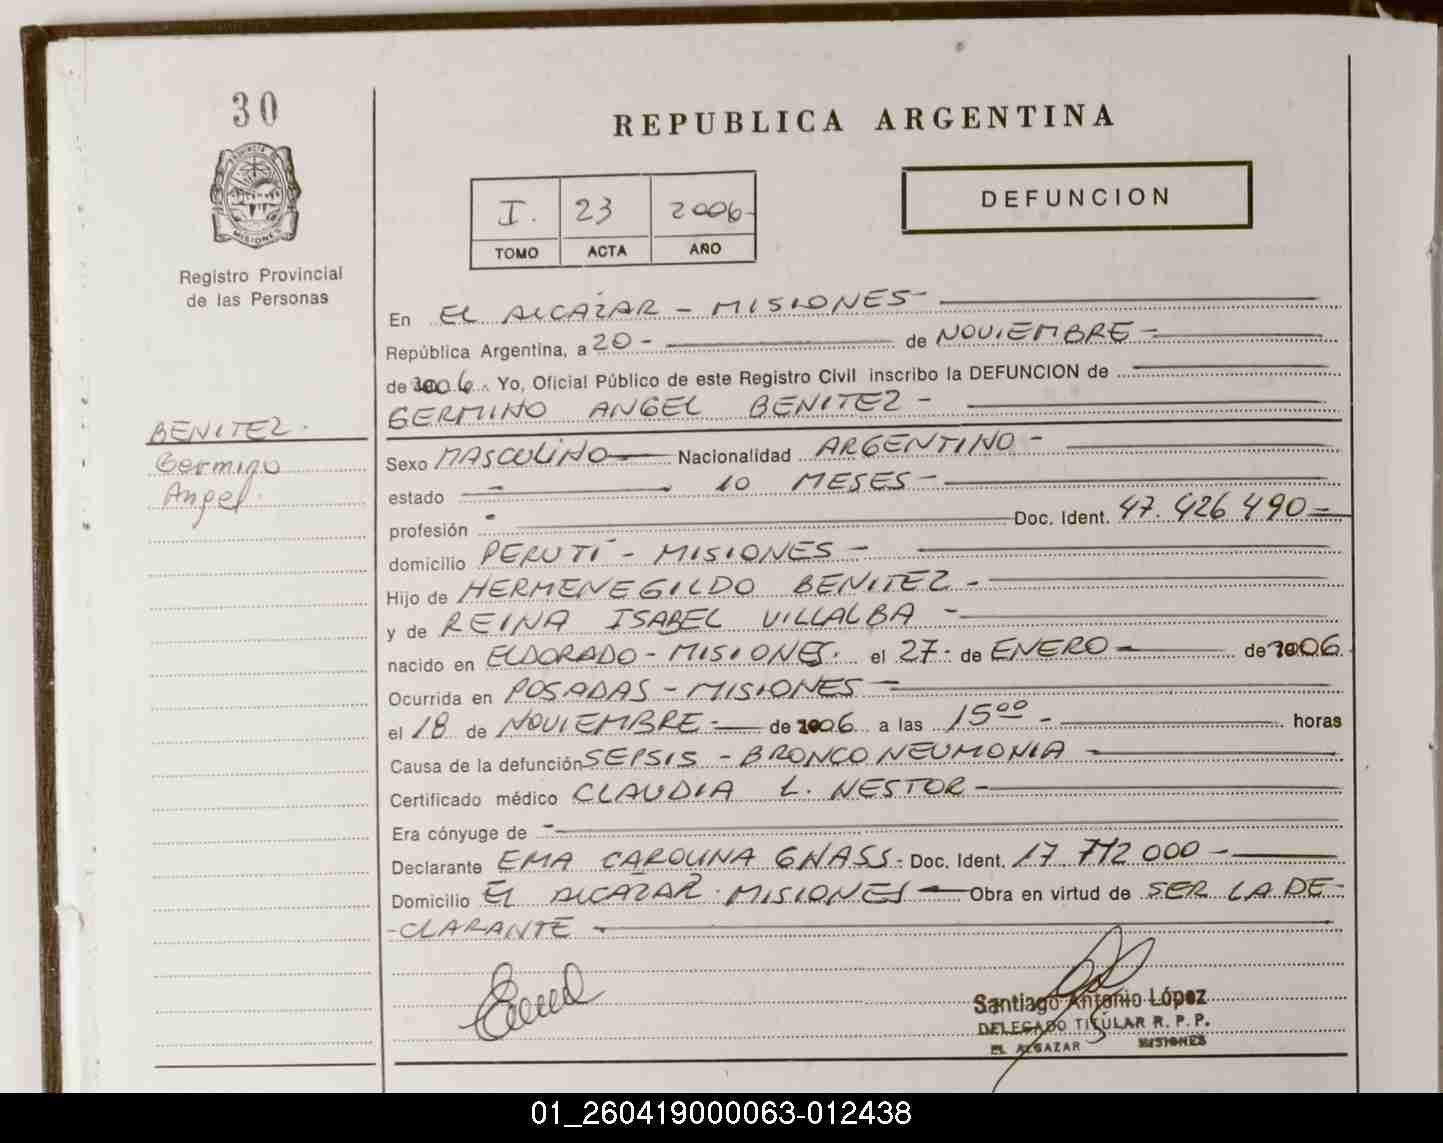 30
PROVINCIA DE
MISIONES
Registro Provincial
de las Personas
REPUBLICA ARGENTINA
I. 23 2006-
TOMO ACTA AÑO
DEFUNCION
En EL ALCAZAR - MISIONES -
República Argentina, a 20 - de NOVIEMBRE -
de 2006. Yo, Oficial Público de este Registro Civil inscribo la DEFUNCION de
GERMINO ANGEL BENITEZ -
BENITEZ.
Germino
Angel.
Sexo MASCULINO Nacionalidad ARGENTINO -
estado - 10 MESES -
profesión - Doc. Ident. 47.426 490 -
domicilio PERUTÍ - MISIONES -
Hijo de HERMENEGILDO BENITEZ -
y de REINA ISABEL VILLALBA -
nacido en ELDORADO - MISIONES. el 27 - de ENERO - de 2006.
Ocurrida en POSADAS - MISIONES -
el 18 de NOVIEMBRE - de 2006 a las 15 00 - horas
Causa de la defunción SEPSIS - BRONCONEUMONIA -
Certificado médico CLAUDIA L. NESTOR -
Era cónyuge de -
Declarante EMA CAROLINA GNASS - Doc. Ident. 17 712 000 -
Domicilio EL ALCAZAR - MISIONES - Obra en virtud de SER LA DE-
-CLARANTE -
Santiago Antonio López
DELEGADO TITULAR R. P. P.
EL ALCAZAR MISIONES
01_260419000063-012438